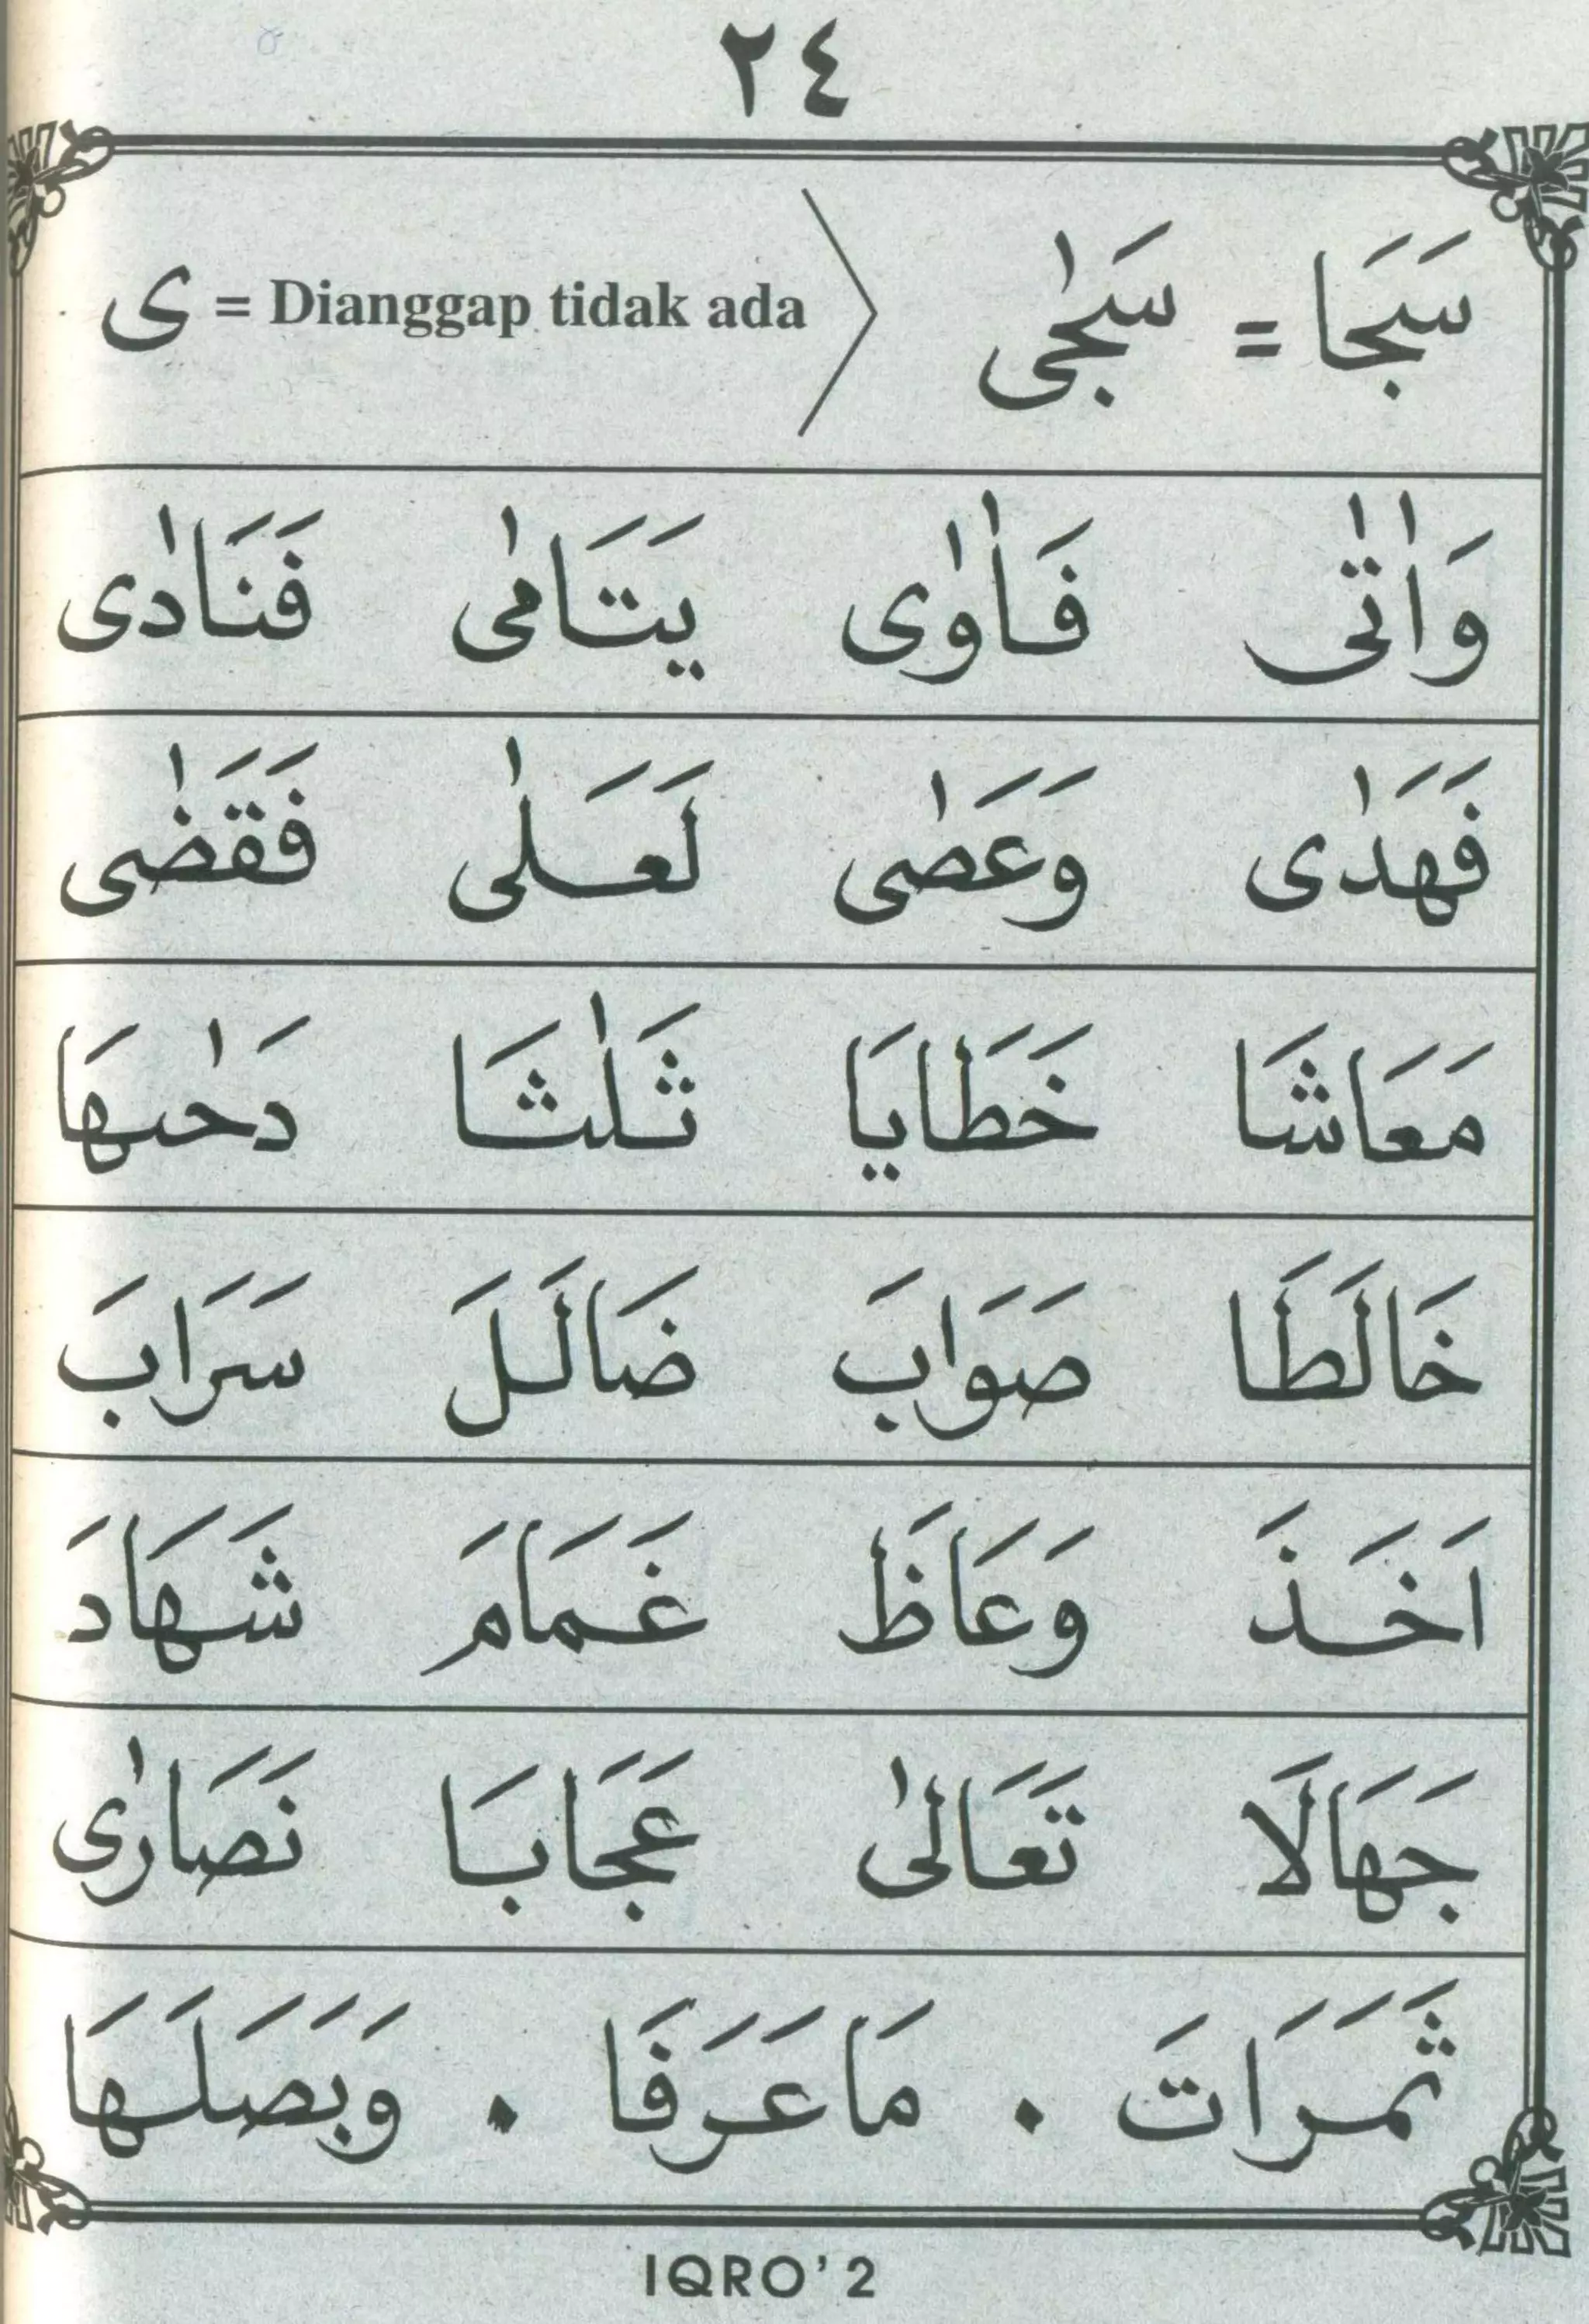 ٢٤
سَجَا = سَجٰى ⟩ ى = Dianggap tidak ada
وَاٰتٰى فَاٰوٰى يَتَامٰى فَنَادٰى
فَهَدٰى وَعَصٰى لَعَلٰى فَقَضٰى
مَعَاشَا خَطَايَا ثَلٰثَا دَحٰىهَا
خَالَطَا صَوَابَ ضَالَلَ سَرَابَ
اَخَذَ وَعَاظَ غَمَامَ شَهَادَ
جَهَالَا تَعَالٰى عَجَابَا نَصَارٰى
ثَمَرَاتَ . مَاعَرَفَا . وَبَصَلَهَا
IQRO' 2